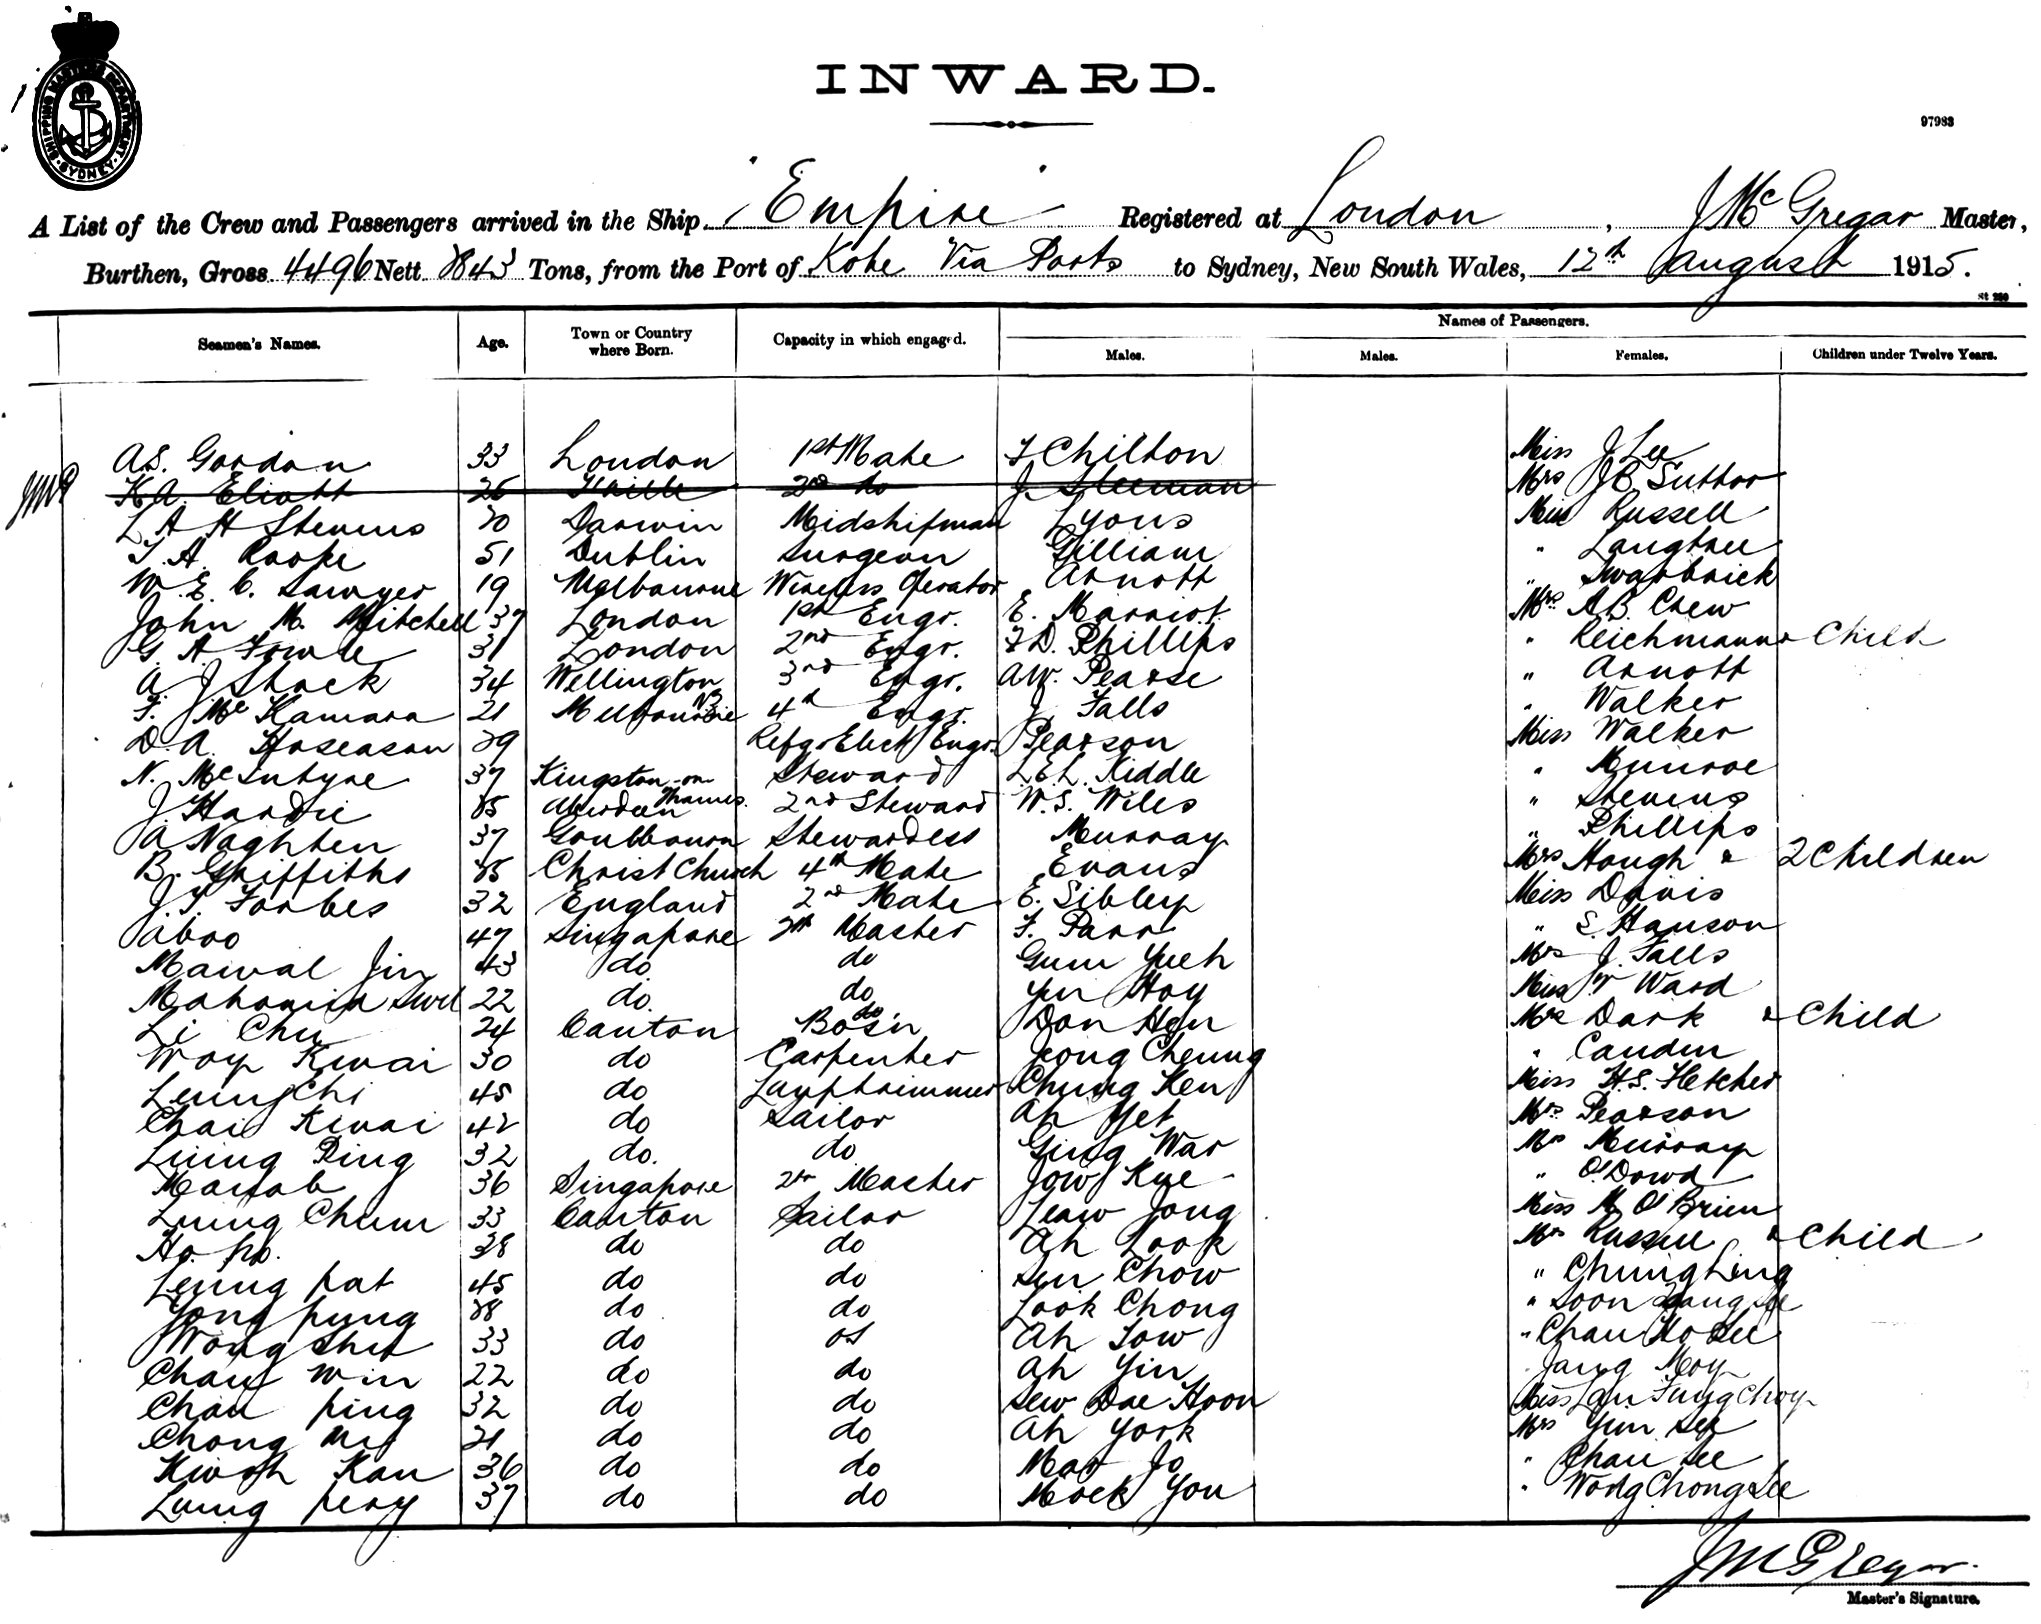 SHIPPING MASTERS DEPARTMENT. SYDNEY.
INWARD.
97983
A List of the Crew and Passengers arrived in the Ship "Empire" Registered at London, J Mc Gregor Master,
Burthen, Gross 4496 Nett 2843 Tons, from the Port of Kobe Via Ports to Sydney, New South Wales, 12th August 1915.
St 230
Names of Passengers.
Seamen's Names. Age. Town or Country where Born. Capacity in which engaged. Males. Males. Females. Children under Twelve Years.
A.S. Gordon 33 London 1st Mate F Chilton Miss J Lee
K.A. Eliott 26 2nd do J. Sleeman Mrs J.B. Suttor
L A H Stevens 20 Darwin Midshipman Lyons Miss Russell
T. A. Rooke 51 Dublin Surgeon Gilliam " Langtree
W. E. C. Sawyer 19 Melbourne Wireless Operator Arnott " Swarbrick
John M. Mitchell 37 London 1st Engr. E. Marriot Mrs A.B. Chew
G. A. Fowle 31 London 2nd Engr. F D. Phillips " Reichmann & Child
A. J Shack 34 Wellington NZ 3rd Engr. A.W. Pearse " Arnott
F. Mc Kamara 21 Melbourne 4th Engr. J. Falls " Walker
D. A. Hoseason 29 Refgr Elect Engr. Pearson Miss Walker
N. McIntyre 37 Kingston-on Thames. Steward L.E.L. Kiddle " Munroe
J. Hardie 25 Aberdeen 2nd Steward W.S. Wiles " Stevens
A Naghten 37 Goulbourn Stewardess Murray " Phillips
B. Griffiths 25 Christ Church 4th Mate Evans Mrs Hough & 2 Children
J. T. Forbes 32 England 2nd Mate E. Sibley Miss Davis
Aboo 47 Singapore Qr Master F. Parr " S. Hanson
Mawal Jin 43 do do Gum Yueh Mrs J. Falls
22 do. do Yin Hoy Miss Ward
Li Chu 24 Canton do Bos'n Don Hen Mrs Dark & Child
Woy Kwai 30 do Carpenter Jeong Cheung " Cauden
Leung Chi 45 do Lamptrimmer Chung Ken Miss H.S. Fletcher
Chai Kwai 42 do Sailor Ah Yet Mrs. Pearson
Leung Ping 32 do. do Ging War Mrs Murray
36 Singapore Qr Master Jow Kye " O'Dowd
Leung Chum 33 Canton Sailor Leaw Jong Miss M O'Brien
Ho po. 38 do do Ah Look Mrs Russell & Child
Leung pat 45 do do Sun Chow " Chung Ling
Yong pung 28 do do Look Chong " Soon
Wong Shek 33 do os Ah Low " Chau Ho See
Chau Win 22 do do Ah Yin Jang Moy
Chau ping 32 do do Sew Dae Hoon Miss Lau Fung Choy
Chong 21 do do Ah York Mrs Yun See
Kwok Kau 36 do do Mar Jo " Chau See
Leung 37 do do Mock You " Wong Chong See
J McGregor.
Master's Signature.